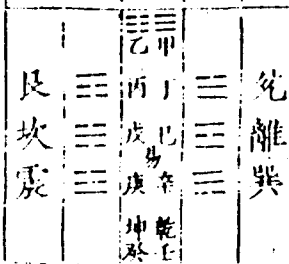 兌離巽
甲丁巳辛乾壬
易
乙丙戊庚坤癸
艮坎震